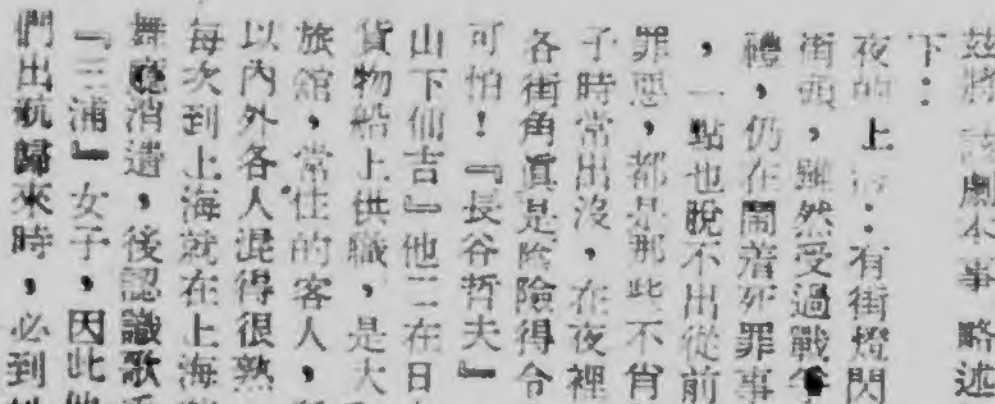 茲將該劇本事略述
下：
夜的上海：有街燈閃
街頭，雖然受過戰爭
禮，仍在鬧着死罪事
，一點也脫不出從前
罪惡，都是那些不肖
子時常出沒，在夜裡
各街角眞是陰險得令
可怕！『長谷哲夫』
山下仙吉』他二在日
貨物船上供職，是大
旅舘，常住的客人，
以內外各人混得很熟
每次到上海就在上海
舞廳消遣，後認識歌
『三浦』女子，因此
們出航歸來時，必到